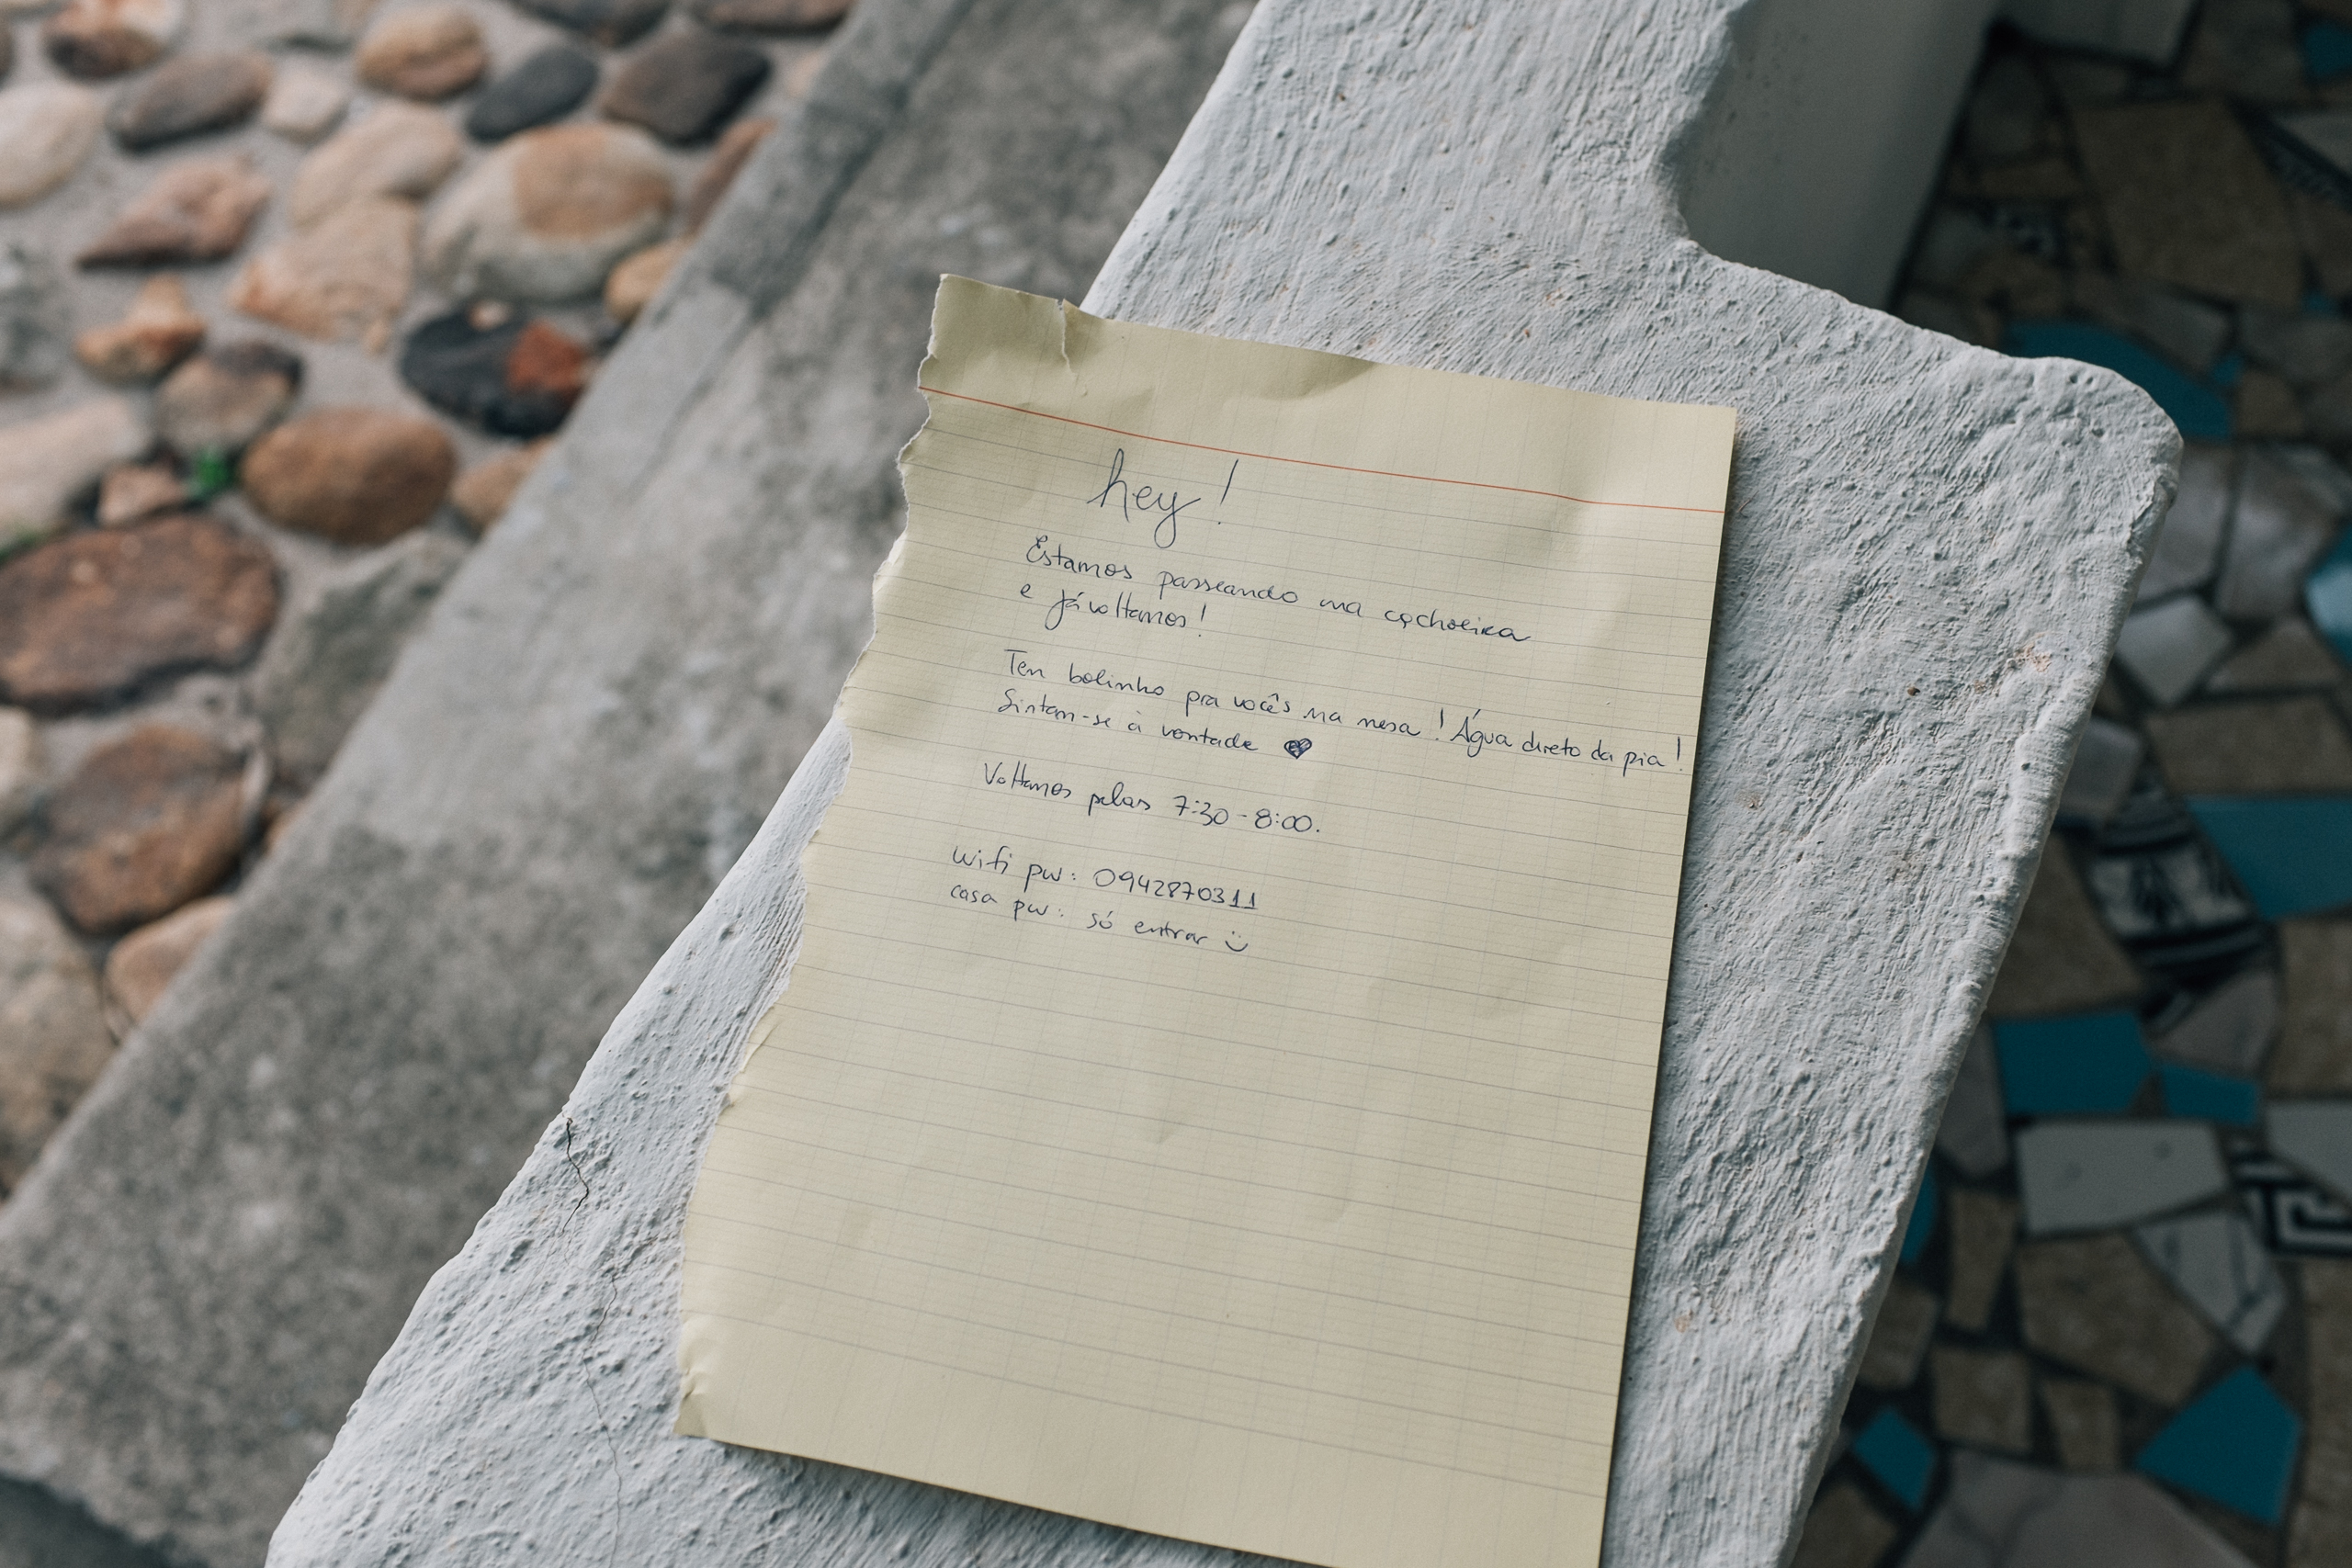 hey!
Estamos passeando na cachoeira
e já voltamos!
Tem bolinho pra vocês na mesa! Água direto da pia!
Sintam-se à vontade ♥
Voltamos pelas 7:30 - 8:00.
Wifi pw: 0942870311
casa pw: só entrar ü